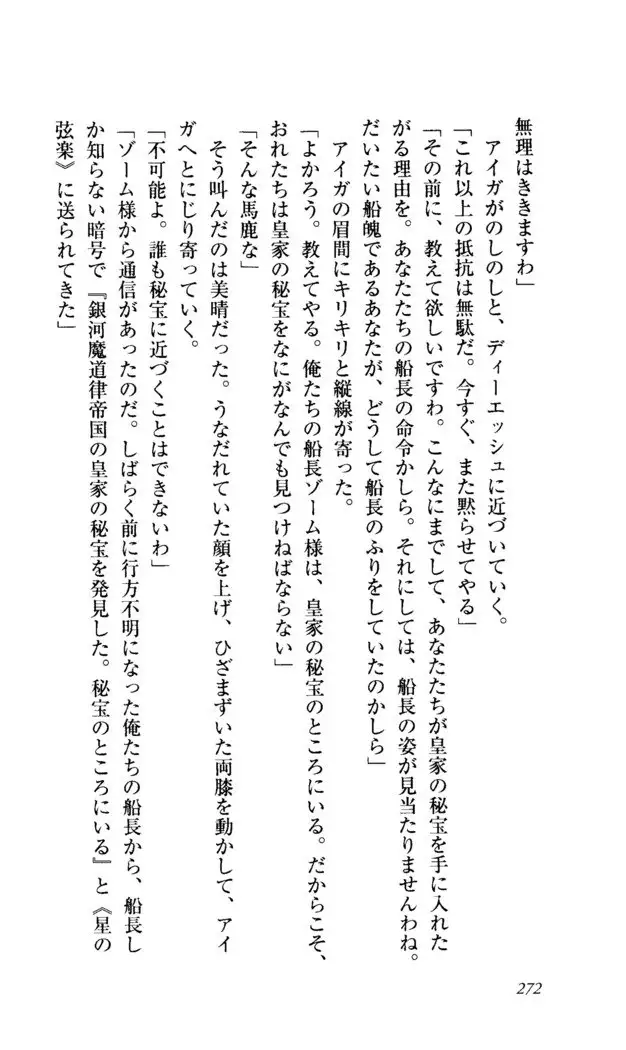 無理はききますわ」
アイガがのしのしと、ディーエッシュに近づいていく。
「これ以上の抵抗は無駄だ。今すぐ、また黙らせてやる」
「その前に、教えて欲しいですわ。こんなにまでして、あなたたちが皇家の秘宝を手に入れた
がる理由を。あなたたちの船長の命令かしら。それにしては、船長の姿が見当たりませんわね。
だいたい船魄であるあなたが、どうして船長のふりをしていたのかしら」
アイガの眉間にキリキリと縦線が寄った。
「よかろう。教えてやる。俺たちの船長ゾーム様は、皇家の秘宝のところにいる。だからこそ、
おれたちは皇家の秘宝をなにがなんでも見つけねばならない」
「そんな馬鹿な」
そう叫んだのは美晴だった。うなだれていた顔を上げ、ひざまずいた両膝を動かして、アイ
ガへとにじり寄っていく。
「不可能よ。誰も秘宝に近づくことはできないわ」
「ゾーム様から通信があったのだ。しばらく前に行方不明になった俺たちの船長から、船長し
か知らない暗号で『銀河魔道律帝国の皇家の秘宝を発見した。秘宝のところにいる』と《星の
弦楽》に送られてきた」
272